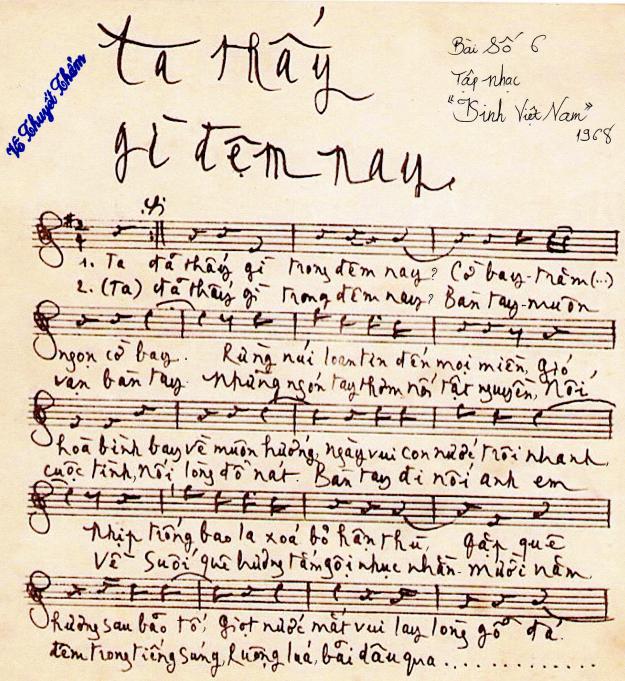 Ta thấy
gì đêm nay
Bài Số 6
Tập nhạc
"Kinh Việt Nam"
1968
Võ Thuyết Thảm
1. Ta đã thấy gì trong đêm nay? Cờ bay-trăm (...)
2. (Ta) đã thấy gì trong đêm nay? Bàn tay-muôn
ngọn cờ bay. Rừng núi loan tin đến mọi miền, gió
vạn bàn tay. Những ngón tay thơm nối tật nguyền, Nối
hoà bình bay về muôn hướng, ngày vui con nước trôi nhanh,
cuộc tình, nối lòng đổ nát. Bàn tay đi nối anh em
Nhịp trống bao la xoá bỏ hận thù, gặp quê
Về Suối quê hương tắm gội nhục nhằn. Mười năm
hương sau bão tố, giọt nước mắt vui lay lòng gỗ đá.
đêm trong tiếng súng, Ruộng lúa, bãi dâu qua ............